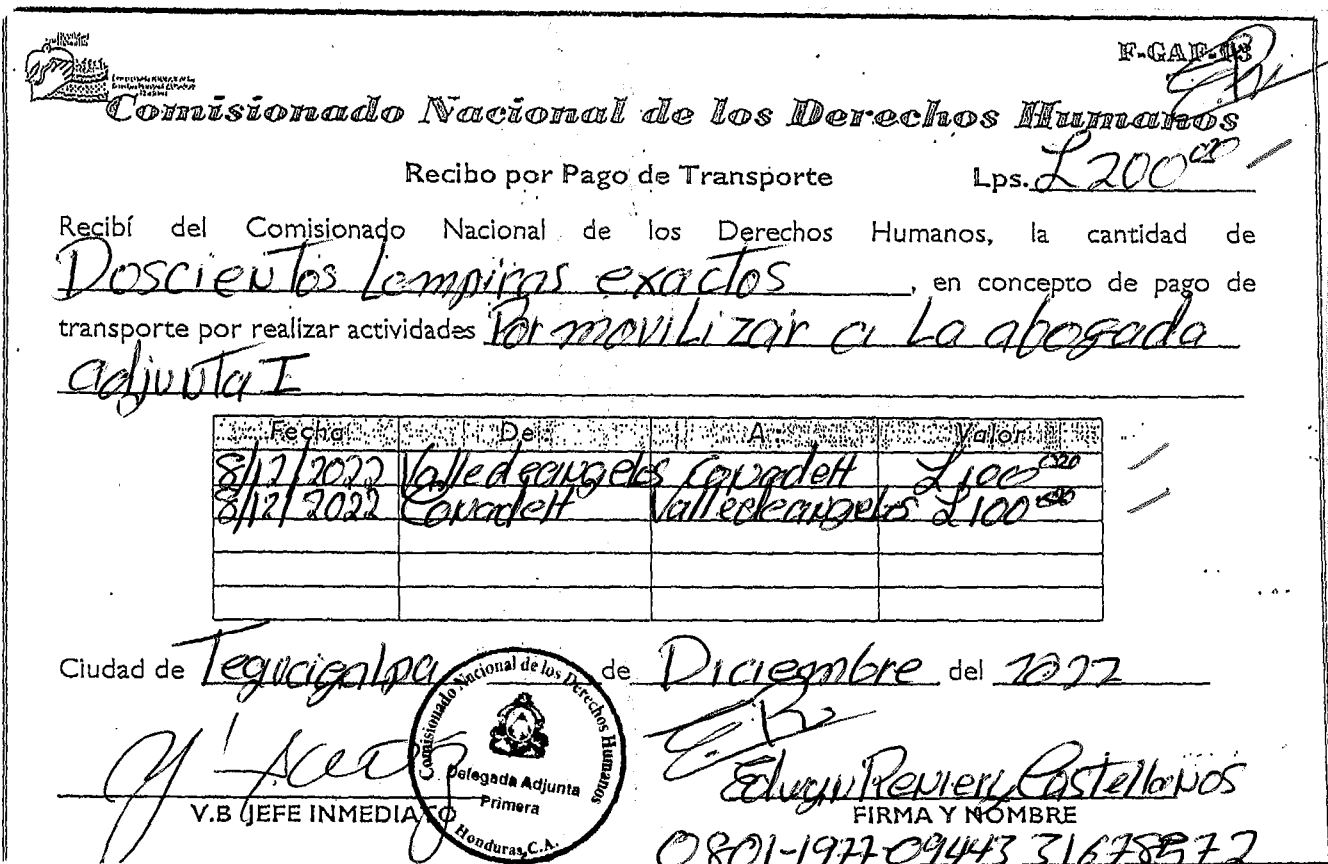 F-GAF-13
Comisionado Nacional de los Derechos Humanos
Recibo por Pago de Transporte Lps. L 200.00
Recibí del Comisionado Nacional de los Derechos Humanos, la cantidad de
Doscientos Lempiras exactos, en concepto de pago de
transporte por realizar actividades Por movilizar a La abogada
adjunta I
Fecha De A Valor
8/12/2022 Valle de angeles Conadeh L100.00
8/12/2022 Conadeh Valle de angeles L100.00
Ciudad de Tegucigalpa de Diciembre del 2022
Comisionado Nacional de los Derechos Humanos
Delegada Adjunta
Primera
Honduras, C.A.
Reniery Castellanos
V.B JEFE INMEDIATO FIRMA Y NOMBRE
0801-1977-09443